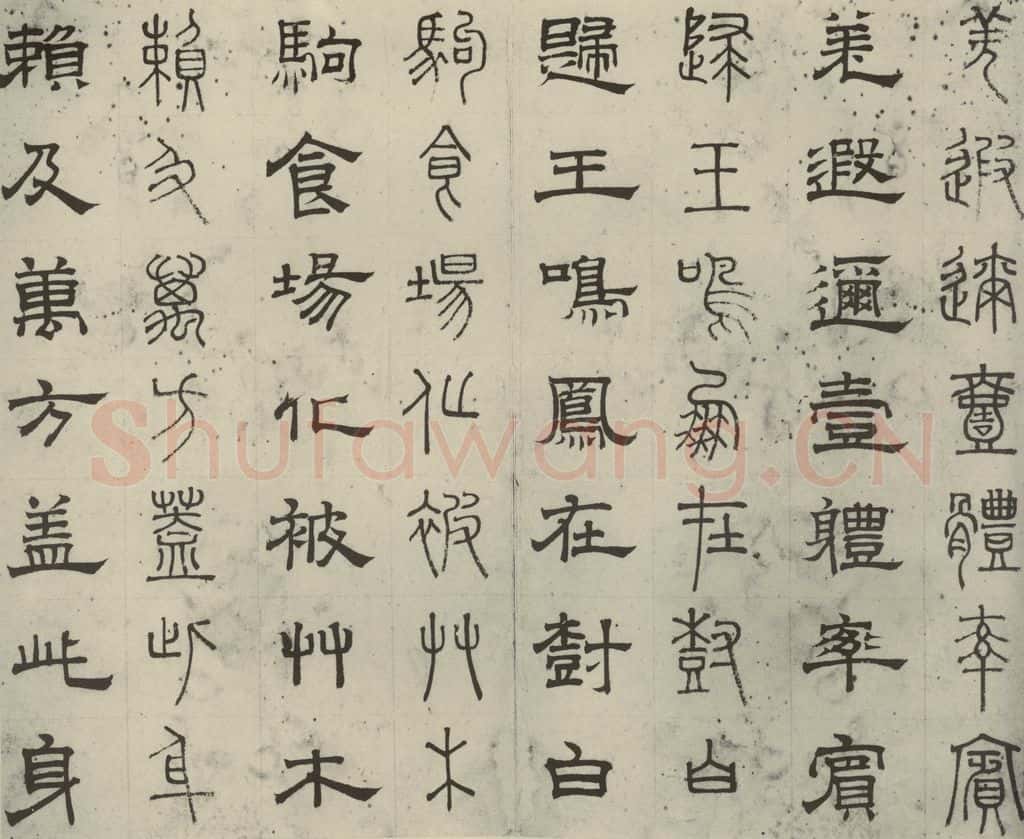 羌遐邇壹體率賓
羌遐邇壹體率賓
歸王鳴鳳在樹白
歸王鳴鳳在樹白
駒食場化被艸木
駒食場化被艸木
賴及萬方蓋此身
賴及萬方盖此身
Shufawang.CN